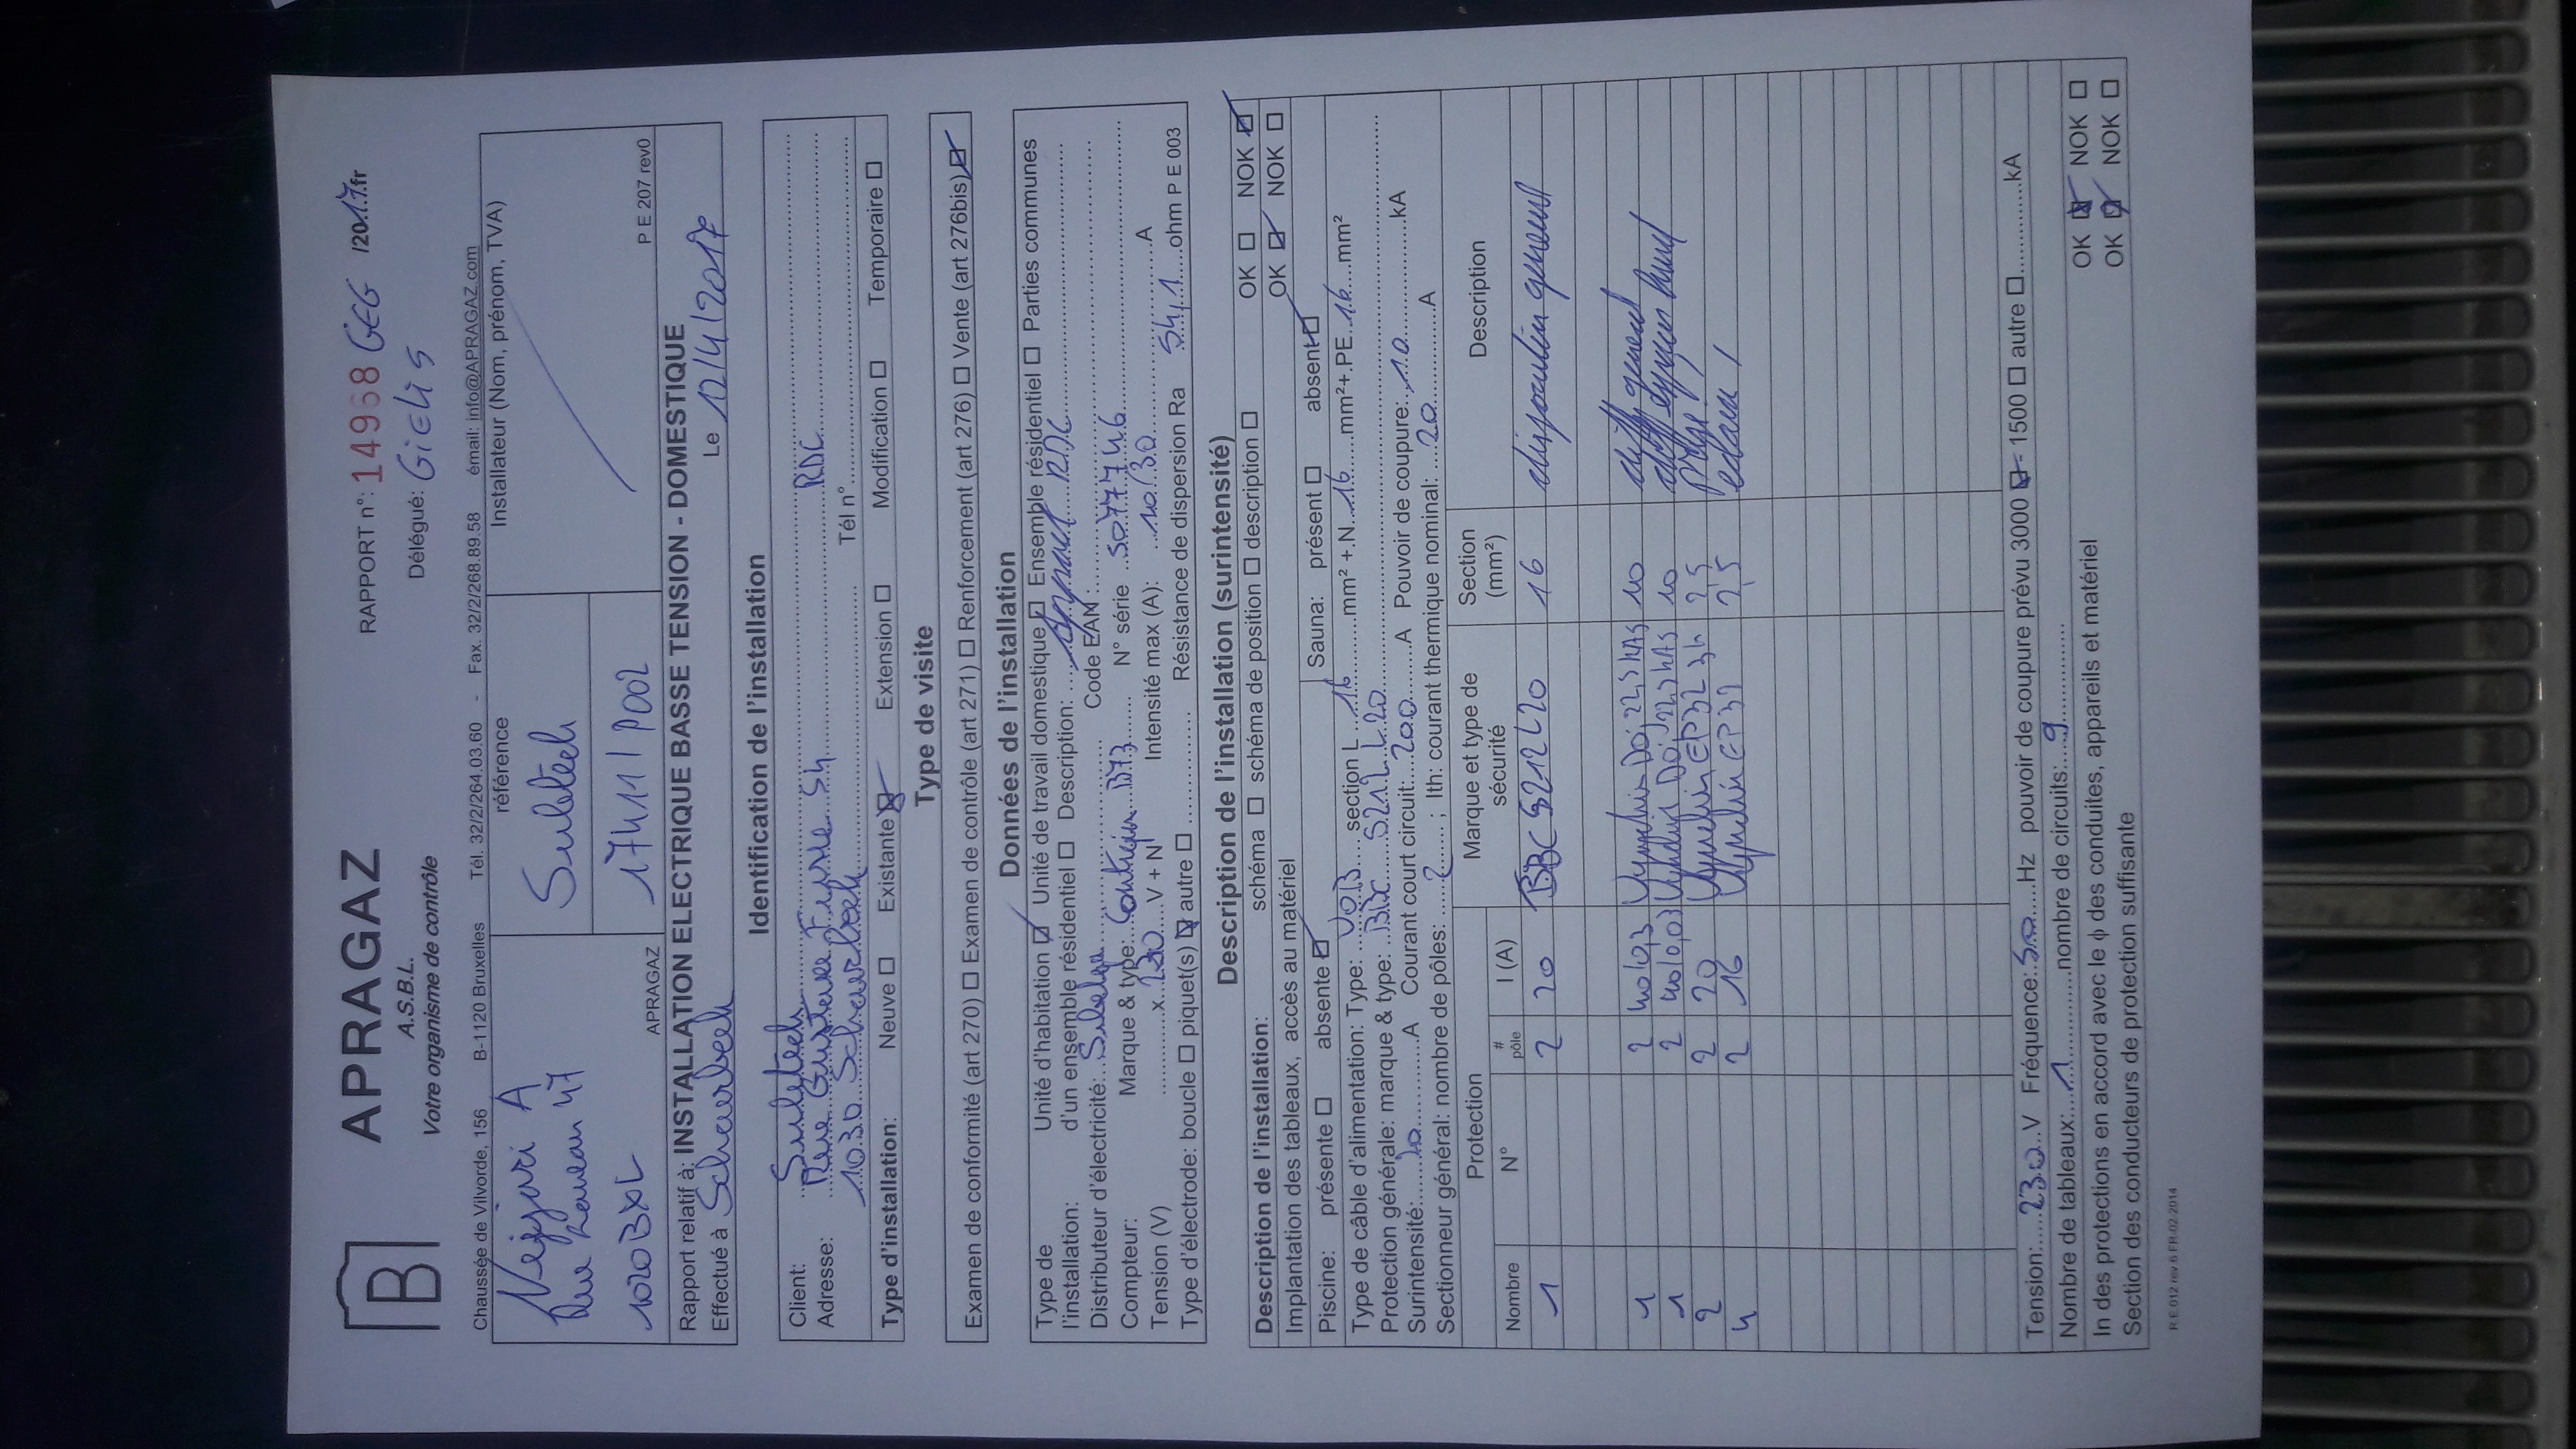 APRAGAZ
A.S.B.L.
Votre organisme de contrôle
RAPPORT n°: 14968 GEG /2017.fr
Délégué: GiELiS
Chaussée de Vilvorde, 156 B-1120 Bruxelles Tél. 32/2/264.03.60 - Fax. 32/2/268.89.58 émail: info@APRAGAZ.com
référence
Installateur (Nom, prénom, TVA)
A
Rue 47
1020 BXL
APRAGAZ
17411/P002
P E 207 rev0
Rapport relatif à: INSTALLATION ELECTRIQUE BASSE TENSION - DOMESTIQUE
Effectué à Schaerbeek Le 12/4/2017
Identification de l'installation
Client:
Adresse: Rue Gustave RDC
1030 Schaerbeek Tél n°
Type d'installation: Neuve ☐ Existante ☒ Extension ☐ Modification ☐ Temporaire ☐
Type de visite
Examen de conformité (art 270) ☐ Examen de contrôle (art 271) ☐ Renforcement (art 276) ☐ Vente (art 276bis) ☑
Données de l'installation
Type de Unité d'habitation ☑ Unité de travail domestique ☐ Ensemble résidentiel ☐ Parties communes
l'installation: d'un ensemble résidentiel ☐ Description: RDC
Distributeur d'électricité: Sibelga Code EAN:
Compteur: Marque & type: N° série 5077746
Tension (V) x 230 V + N Intensité max (A): 10/30 A
Type d'électrode: boucle ☐ piquet(s) ☑ autre ☐ Résistance de dispersion Ra 54,1 ohm P E 003
Description de l'installation (surintensité)
Description de l'installation: schéma ☐ schéma de position ☐ description ☐ OK ☐ NOK ☑
Implantation des tableaux, accès au matériel OK ☑ NOK ☐
Piscine: présente ☐ absente ☑ Sauna: présent ☐ absent ☑
Type de câble d'alimentation: Type: VOB section L 16 mm² + N 16 mm² + PE 16 mm²
Protection générale: marque & type: BBC S212 L20
Surintensité: 20 A Courant court circuit: 200 A Pouvoir de coupure: 10 kA
Sectionneur général: nombre de pôles: 2 ; Ith: courant thermique nominal: 20 A
Protection
Marque et type de sécurité
Section (mm²)
Description
Nombre N° # pôle I (A)
1 2 20 BBC S212 L20 16
1 2 40/0,3 10 diff general
1 2 40/0,03 10
2 2 20 2,5
4 2 16 2,5
Tension: 230 V Fréquence: 50 Hz pouvoir de coupure prévu 3000 ☑ 1500 ☐ autre ☐ kA
Nombre de tableaux: 1 nombre de circuits: 9
In des protections en accord avec le ϕ des conduites, appareils et matériel OK ☑ NOK ☐
Section des conducteurs de protection suffisante OK ☑ NOK ☐
R E 012 rev.6 FR-02/2014